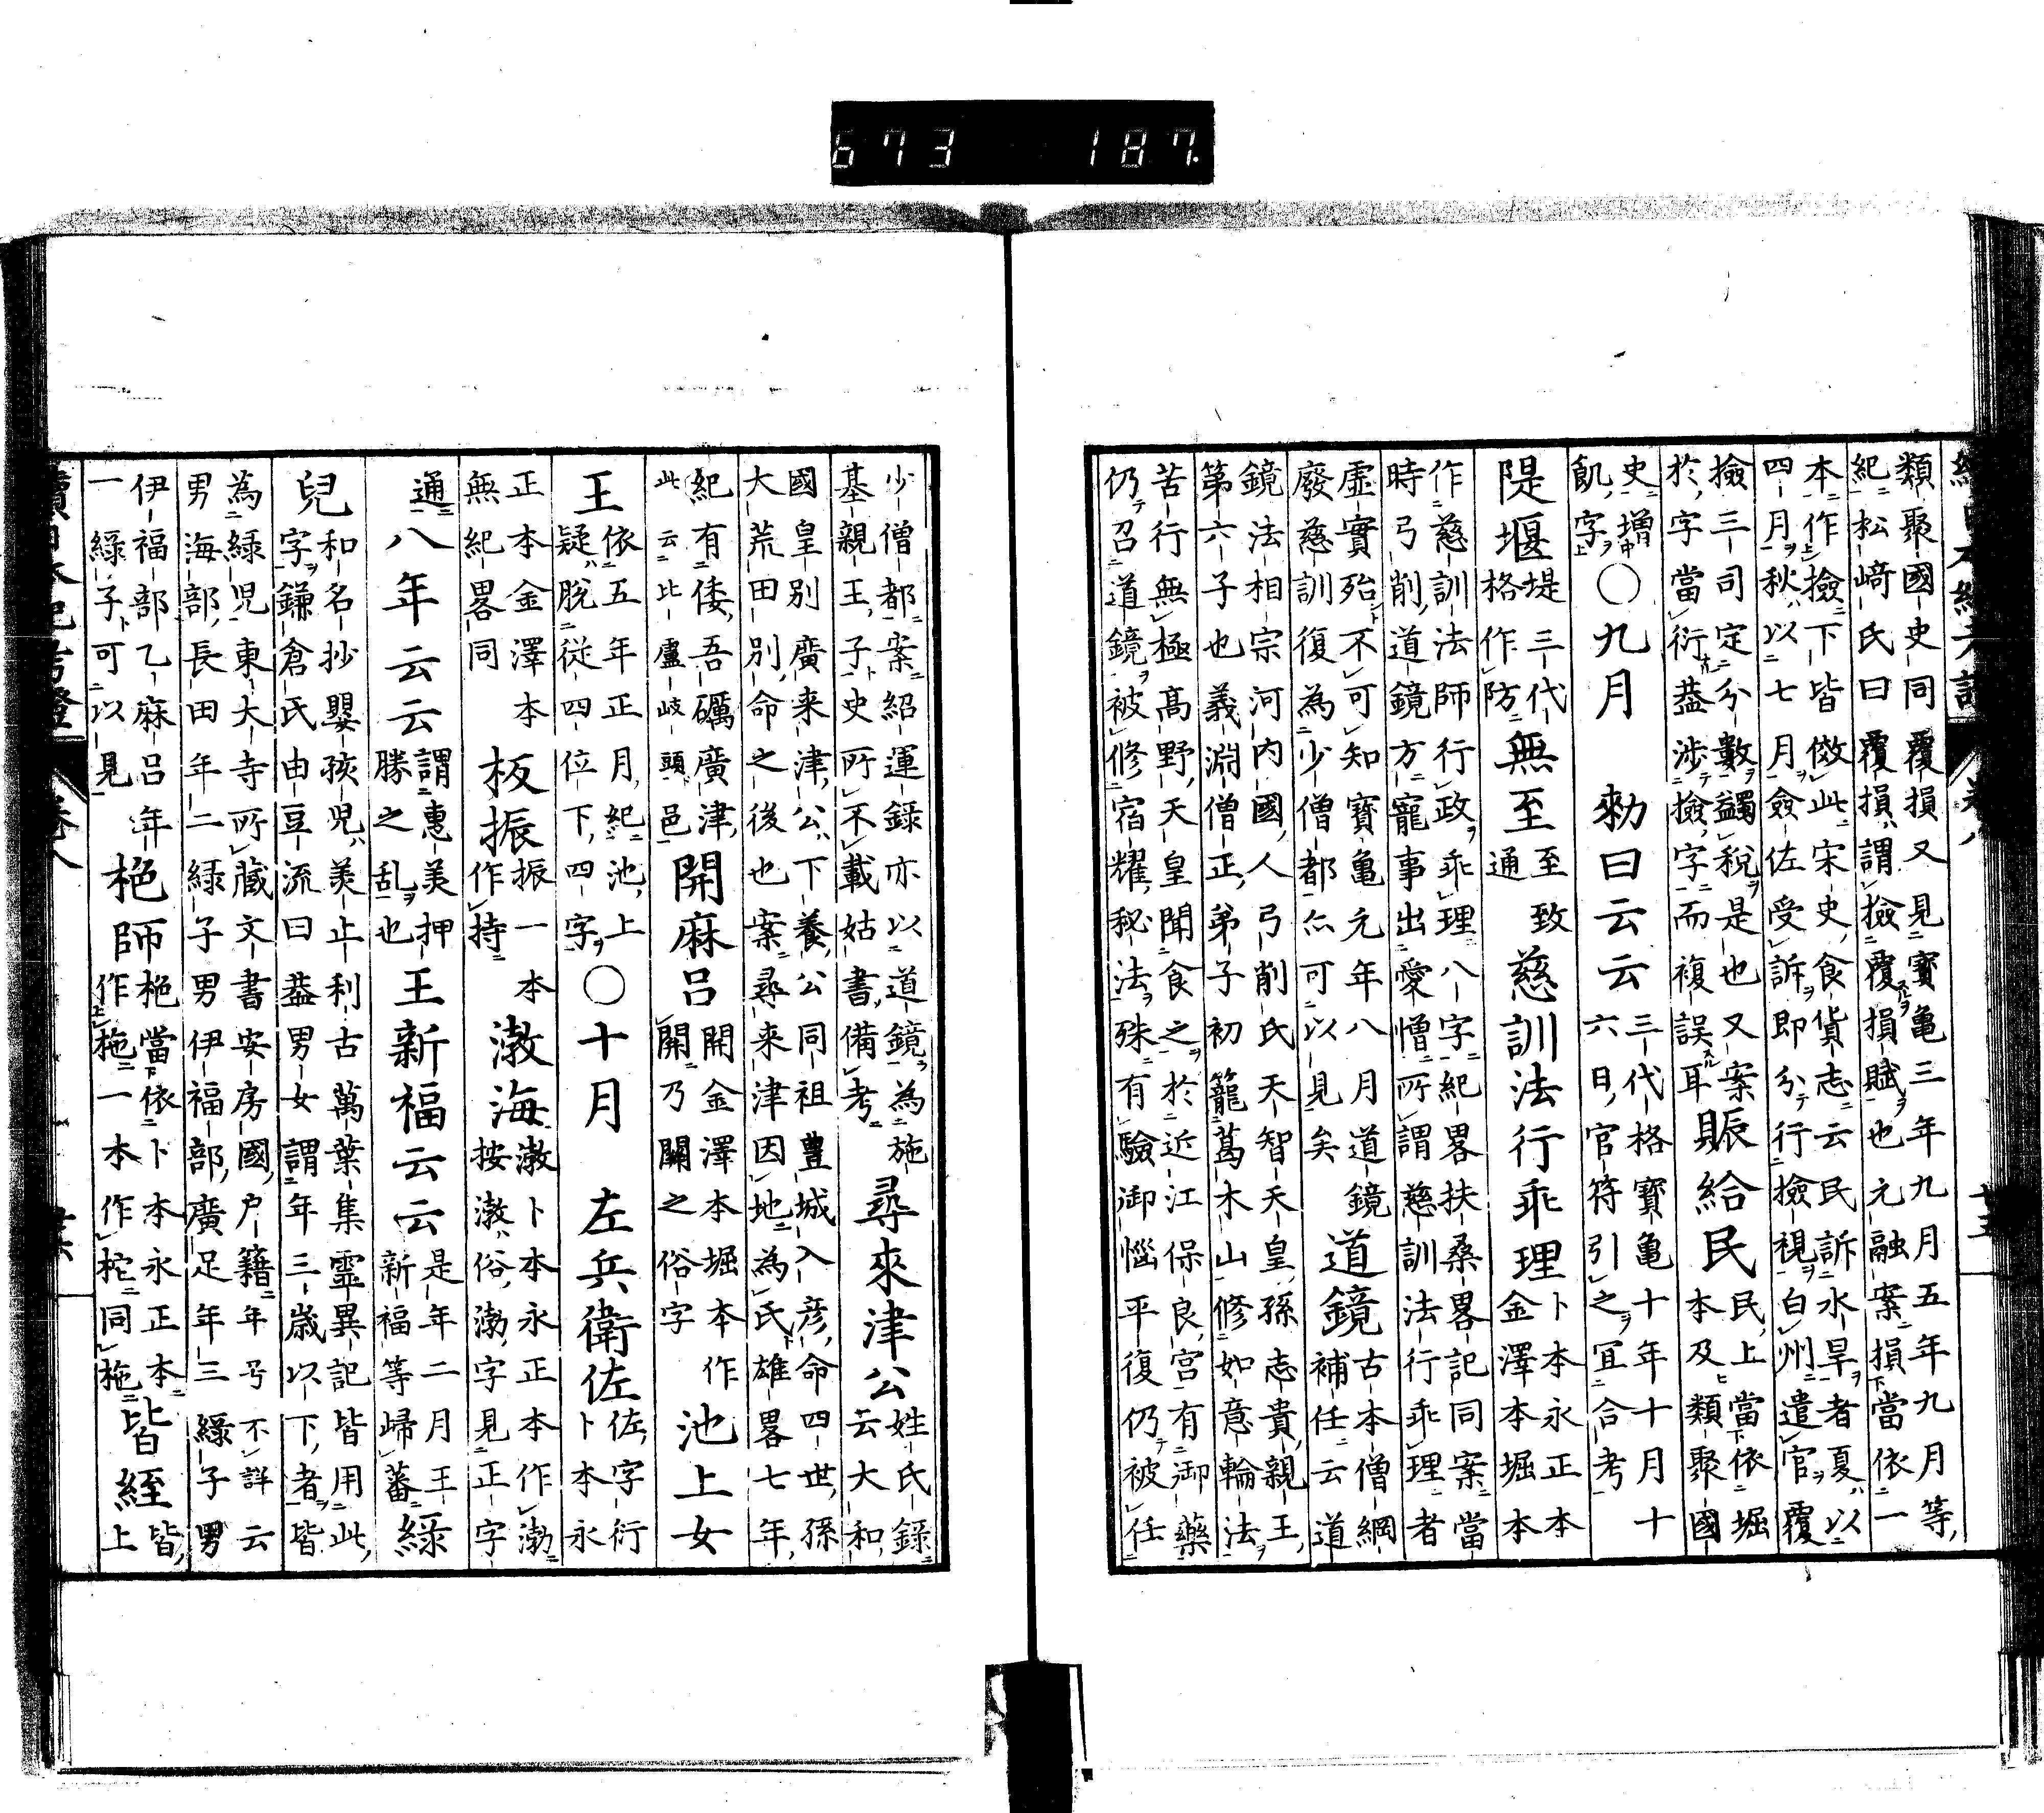 673 187
類聚國史同覆損又見寶亀三年九月五年九月等
紀松﨑氏曰覆損謂撿覆損賦也元融案損當依一
本作撿下皆倣此宋史食貨志云民訴水旱者夏以
四月秋以七月僉佐受訴即分行撿視白州遣官覆
撿三司定分數蠲税是也又案
於字當衍葢渉撿字而複誤耳
賑給民
民上當依堀
本及類聚國
史増
飢字
〇九月 勅曰云云
三代格寶亀十年十月十
六日官符引之冝合考
隄堰
堤三代
格作防
無至
至致
通
慈訓法行乖理
卜本永正本
金澤本堀本
作慈訓法師行政乖理八字紀畧扶桑畧記同案當
時弓削道鏡方寵事出愛憎所謂慈訓法行乖理者
虚實殆不可知寶亀元年八月道鏡
廢慈訓復為少僧都亦可以見矣
道鏡
古本僧綱
補任云道
鏡法相宗河内國人弓削氏天智天皇孫志貴親王
第六子也義淵僧正弟子初籠葛木山修如意輪法
苦行無極髙野天皇聞食之於近江保良宮有御藥
仍召道鏡被修宿耀秘法殊有驗御惱平復仍被任
少僧都案紹運録亦以道鏡為施
基親王子史所不載姑書備考
尋來津公
姓氏録
云大和
國皇別廣来津公下養公同祖豊城入彦命四世孫
大荒田別命之後也案尋来津因地為氏雄畧七年
紀有倭吾礪廣津
此云比盧岐頭邑
開麻呂
開金澤本堀本作
開乃闢之俗字
池上女
王
依五年正月紀池上
疑脱從四位下四字
〇十月 左兵衛佐
佐字衍
卜本永
正本金澤本
無紀畧同
板振
振一本
作持
渤海
渤卜本永正本作渤
按渤俗渤字見正字
通
八年云云
謂惠美押
勝之乱也
王新福云云
是年二月王
新福等歸蕃
緑
兒
和名抄嬰孩児美止利古萬葉集靈異記皆用此
字鎌倉氏由豆流曰葢男女謂年三歳以下者皆
為緑児東大寺所藏文書安房國戸籍年号不詳云
男海部長田年二緑子男伊福部廣足年三緑子男
伊福部乙麻呂年
一緑子可以見
柂師
柂當依卜本永正本
作拖一本作柁同拖
皆絰
皆上
續日本紀考證 卷八